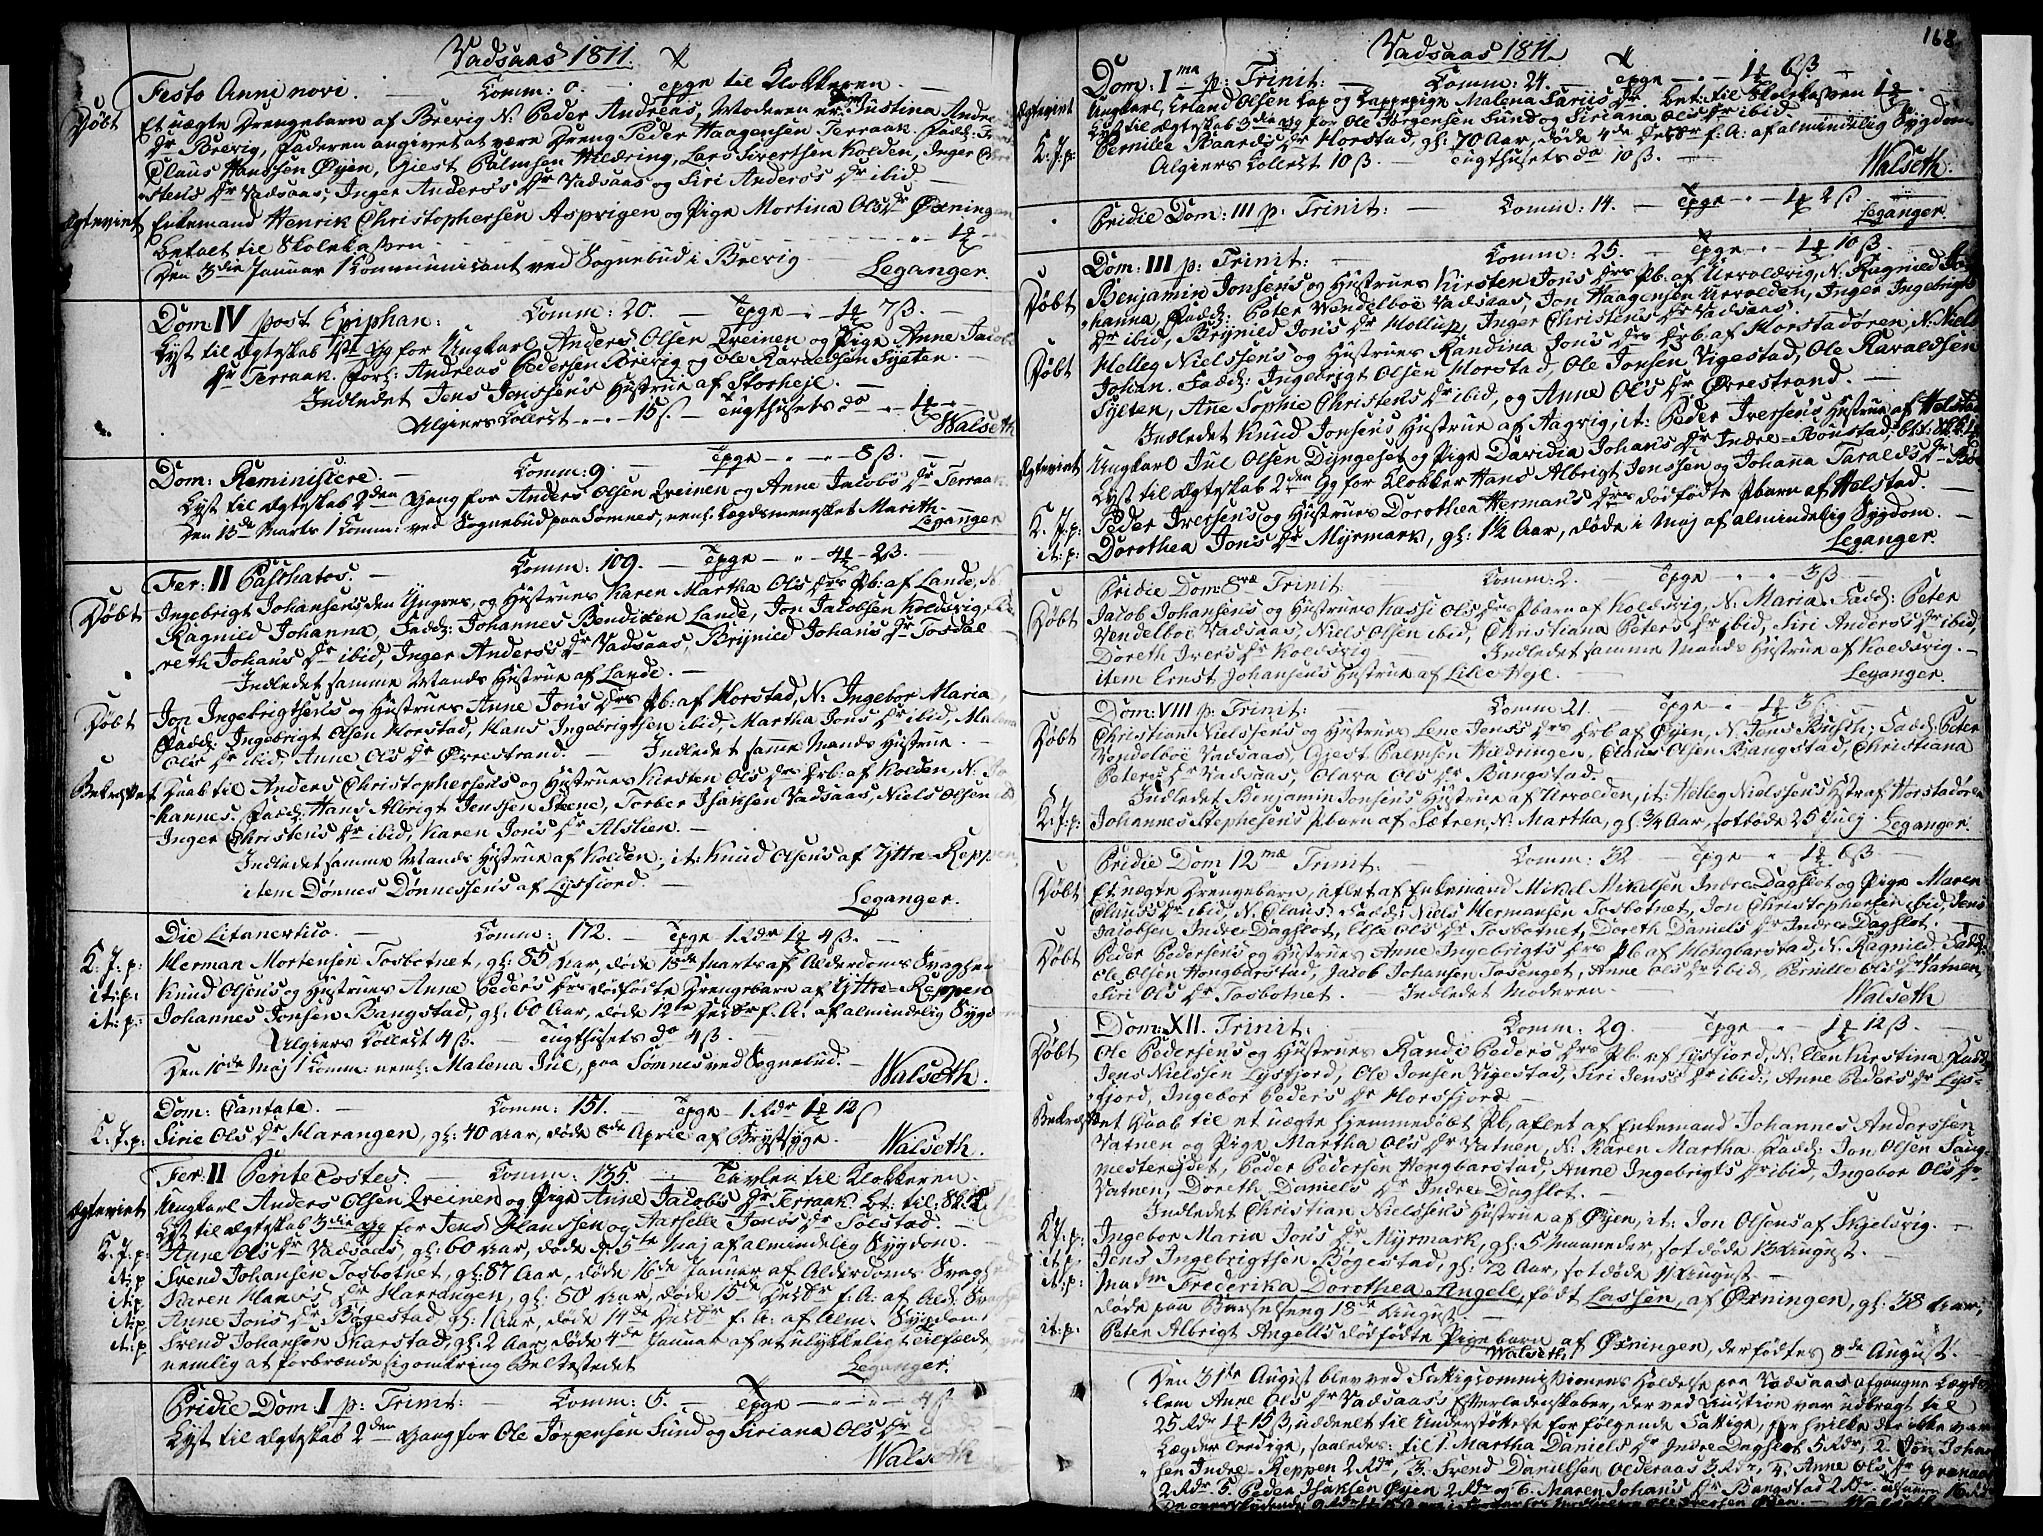 Vadsaas 1811.
Festo Anni novi. — Comm: 0. — Tvge til Klokkeren —
Døbt Et uægte Drengebarn af Brevig N: Peder Andreas, Moderen er Justina
Dr Brevig, Faderen angivet at være Dreng Peder Haagensen Terraak. Fadd:
Claus Hanssen Øyen, Giest Palmsen Hildring, Lars Sivertsen Kolden, Inger
stens Dr Vadsaas, Inger Anders's Dr Vadsaas og Siri Anders's Dr ibid —
Ægteviet Enkemand Henrik Christophersen Asprigen og Pige Mortina Ols Dr Øxningen
betalt til Skolekassen
Den 3die Januar 1 Kommunicant ved Sognebud i Brevig — Leganger.
Dom: IV post Epiphan: Comm: 20. — Tvge — 7ß. —
Lyst til Ægteskab for Ungkarl Anders Olsen Qveinen og Pige Anne
Dr Terraak. Forl: Andreas Pedersen Brevig og Ole Haraldsen Sylten. —
Indledet Jens Jonssen's Hustrue af Storheje. —
Algiers Collect — 15ß — Tugthusets do — Walseth
Dom: Reminiscere — Comm: 9. — Tvge — 8ß. —
Lyst til Ægteskab 2den Gang for Anders Olsen Qveinen og Anne Jacobs Dr Terraak
Den 13de Marts 1 Komm: ved Sognebud paa Sømnes, neml: Lægdsmennesket Marith. —
Leganger
Fer: II Paschatos. — Comm: 109. — Tvge — 2ß. —
Døbt Ingebrigt Johansen's den Yngres, og Hustrues Karen Martha Ols Drs Pb: af Lande, N.
Ragnild Johanna, Fadd: Johannes Bendixen Lande, Jon Jacobsen Koldsvig,
reth Johans's Dr ibid, Inger Anders's Dr Vadsaas, Brynild Johans's Dr Tosdal
Indledet samme Mands Hustrue af Lande. —
Døbt Jon Ingebrigtsen's og Hustrues Anne Jons's Drs Pb: af Horstad, N: Ingebor Maria,
Fadd: Ingebrigt Olsen Horstad, Hans Ingebrigtsen ibid, Martha Jons's Dr ibid,
Ols Dr ibid, Anne Ols Dr Øvrestrand. — Indledet samme Mands Hustrue —
Daab til Anders Christophersen's og Hustrues Kirsten Ols Drs Drb: af Kolden, N:
hannes. Fadd: Hans Albrigt Jenssen Steene, Torber Isaksen Vadsaas, Niels Olsen
Inger Christens's Dr ibid, Karen Jons's Dr Alstien. —
Indledet samme Mands Hustrue af Kolden, it: Knud Olsen's af Yttre-Reppen,
item Dønnes Dønnessen's af Lysfiord. —
Leganger.
Die Litanevtico. — Comm: 172. — Tvge 1 Rdr 4ß. —
K: J: p: Herman Mortensen Tosbotnet, gl: 85 Aar, døde 15de Marts af Alderdoms
it: p: Knud Olsen's og Hustrues Anne Peders's Drs dødfødte Drengebarn af Yttre-Reppen
it: p: Johannes Jonsen Bangstad, gl: 60 Aar, døde 12te f. A: af almindelig
Algiers Collect 4ß. — Tugthusets do 4ß. —
Den 10de Maj 1 Komm: neml: Malena Jul, paa Sømnes ved Sognebud. — Walseth.
Dom: Cantate. — Comm: 151. — Tvge — 1 Rdr 12ß
K: J: p: Sirie Ols Dr Harangen, gl: 40 Aar, døde 8de April af Brystsyge. Walseth.
Fer: II Pentecostes. — Comm: 135. — Tavlen til Klokkeren.
Ægteviet Ungkarl Anders Olsen Qveinen og Pige Anne Jacobs Dr Terraak. bt: til:
Lyst til Ægteskab 3die Gg for Jens Hanssen og Aarselle Jons's Dr Solstad. —
K: J: p: Anne Ols Dr Vadsaas, gl: 60 Aar, døde d: 5te Maj af almindelig Sygdom. —
it: p Svend Johansen Tosbotnet, gl: 87 Aar, døde 16de Januar af Alderdoms
it: p Karen Hans's Dr Harrangen, gl: 80 Aar, døde 15de f: A: af Ald:
it: p Anne Jons's Dr Bøgestad, gl: 1 Aar, døde 14de f: A: af Alm: Sygdom
it: p Svend Johansen Skarstad, gl: 2 Aar, døde 4de Januar af et ulykkeligt Tilfælde,
nemlig at forbrænde sig omkring Beltestedet — Leganger.
Pridie Dom: I p: Trinit: Comm: 5. — Tvge — 4ß
Lyst til Ægteskab 2den Gang for Ole Jørgensen Sund og Siriana Ols Dr
Walseth
168
Vadsaas 1811.
Dom: Ima p: Trinit: — Comm: 24. — Tvge — 6ß
Ægteviet Ungkarl, Erland Olsen Lap og Lappepige Malena Dr bet: til Skolekassen
Lyst til Ægteskab 3die Gg for Ole Jørgensen Sund og Siriana Ols Dr ibid.
K: J: p: Pernille Dr Horstad, gl: 70 Aar, døde 4de f: A: af almindelig Sygdom
Algiers Collect 10ß. — Tugthusets do 10ß. —
Walseth.
Pridie Dom: III p: Trinit: Comm: 14. — Tvge — 2ß
Leganger
Dom: III p: Trinit: — Comm: 25. — Tvge — 10ß.
Døbt Benjamin Jonsen's og Hustrues Kirsten Jons's Drs Pb: af Urvoldvig, N: Ragnild
hanna, Fadd: Peter Vendelboe Vadsaas, Jon Haagensen Urvolden, Inger
Dr ibid, Brynild Jons's Dr Hollup, Inger Christens's Dr Vadsaas.
Døbt Helleg Nielssen's og Hustrues Randina Jons's Drs Drb: af Horstadøren, N: Niels
Johan. Fadd: Ingebrigt Olsen Horstad, Ole Jonsen Vigestad, Ole Haraldsen
Sylten, Ane Sophie Christens's Dr ibid, og Anne Ols's Dr Øvrestrand. —
Indledet Knud Jonsen's Hustrue af Aagvig, it: Peder Iversen's Hustrue af Helstad
Ægteviet Ungkarl Jul Olsen Dyngeset og Pige Davidia Johans's Dr Indre-Bønstad.
Lyst til Ægteskab 2den Gg for Klokker Hans Albrigt Jenssen og Johanna Taralds Dr
K: J: p: Peder Iversen's og Hustrues Dorothea Hermans's Drs dødfødte Pbarn af Helstad. —
it: p: Dorothea Jons's Dr Myrmark, gl: 1½ Aar, døde i Maj af almindelig Sygdom. —
Leganger.
Pridie Dom 8væ Trinit — Comm: 2. — Tvge — 3ß —
Døbt Jacob Johansen's og Hustrues Kassi Ols Drs Pbarn af Koldsvig, N: Maria. Fadd: Peter
Vendelboe Vadsaas, Niels Olsen ibid, Christiana Peters's Dr ibid, Siri Anders's Dr ibid,
Doreth Ivers's Dr Koldsvig — Indledet samme Mands Hustrue af Koldsvig. —
item Ernst Johansen's Hustrue af Lille Heje. — Leganger.
Dom: VIII p: Trinit: Comm 21. — Tvge — 3ß. —
Døbt Christian Nielssen's og Hustrues Lene Jens's Drs Drb: af Øyen, N: Jens Busch; Fadd: Peter
Vendelboe Vadsaas, Gjest Palmsen Hildringen, Claus Olsen Bangstad, Christiana
Peters's Dr Vadsaas, Olava Ols Dr Bangstad.
Indledet Benjamin Jonsen's Hustrue af Urvolden, it: Helleg Nielssen's Hstr af Horstadøren
K: J: p: Johannes Stephesen's Pbarn af Sætren, N: Martha, gl: ¾ Aar, sotdøde 25 Julj. Leganger.
Pridie Dom 12mæ Trinit: Comm: 32 — Tvge — 6ß —
Døbt Et uægte Drengebarn, aflet af Enkemand Mikel Mikelsen Indre-Dagslot og Pige Maren
Claus's Dr ibid, N. Claus. Fadd: Niels Hermansen Tosbotnet, Jon Christophersen ibid, Jens
Jacobsen Indre-Dagslot, Else Ols Dr Tosbotnet, Doreth Daniels Dr Indre Dagslot.
Døbt Peder Pedersen's og Hustrues Anne Ingebrigts Drs Pb af Hongbarstad, N: Ragnild, Fadd:
Ole Olsen Hongbarstad, Jacob Johansen Tosenget, Anne Ols Dr ibid, Pernille Ols Dr Vatnen,
Siri Ols Dr Tosbotnet. — Indledet Moderen. — Walseth
Dom: XII. Trinit: Comm: 29. Tvge — 12ß. —
Døbt Ole Pedersen's og Hustrues Randi Peders's Drs Pb: af Lysfiord, N: Elen Kirstina, Fadd:
Jens Nielssen Lysfjord, Ole Jonsen Vigestad, Siri Jens's Dr ibid:, Anne Peders's Dr Lys-
fjord, Ingebor Peders's Dr Horsfjord —
Daab til et uægte hjemmedøbt Pb, aflet af Enkemand Johannes Anderssen
Vatnen og Pige Martha Ols Dr Vatnen, N: Karen Martha. Fadd: Jon Olsen
mestereidet, Peder Pedersen Hongbarstad, Anne Ingebrigts Dr ibid, Ingebor Ols Dr
Vatnen, Doreth Daniels Dr Indre Dagslot. —
Indledet Christian Nielssen's Hustrue af Øyen, it: Jon Olsens af Skjelsvig. —
K J: p: Ingebor Maria Jons's Dr Myrmark, gl: 5 Maaneder, sotdøde 13 August. —
it: p: Jens Ingebrigtsen Bøgestad, gl: 72 Aar, sotdøde 11 August —
it: p: Madm Frederika Dorothea Angell, født Lassen, af Øxningen, gl: 38 Aar,
døde paa Barselseng 18de August. —
it: p: Peter Albrigt Angell's dødfødte Pigebarn af Øxningen, der fødtes 8de August. —
Walseth
Den 31te August blev ved Fattigcommissionens Holdelse paa Vadsaas afgangne
lem Anne Ols Dr Vadsaas's Efterladenskaber, der ved Auction var udbragt til
25 Rdr 15ß, uddeelt til Understøttelse for følgende Fattige, for hvilke der ikke var
Lægder ledige, saaledes: til 1. Martha Daniels Dr Indre Dagslot 5 Rdr, 2. Jon
sen Indre-Reppen 2 Rdr, 3. Svend Danielsen Olderaas 3 Rdr, 4. Anne Ols Dr
2 Rdr 5. Peder Isaksen Øyen 2 Rdr og 6. Maren Johans's Dr Bangstad 2 Rdr